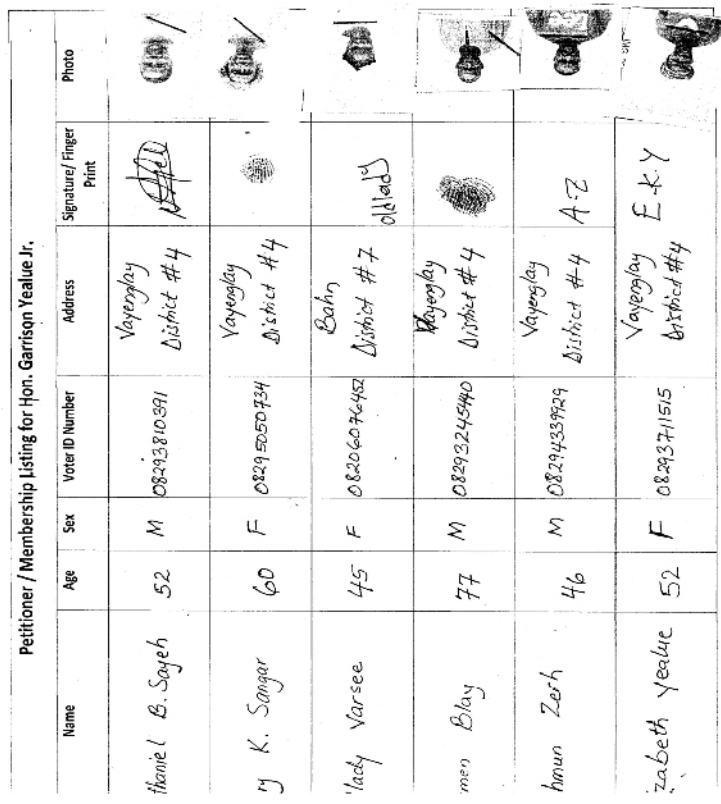 Petitioner / Membership Listing for Hon. Garrison Yealue Jr.
Name Age Sex Voter ID Number Address Signature/ Finger Print Photo
thaniel B. Sayeh 52 M 08293810391 Vayenglay District #4
ry K. Sangar 60 F 08295050734 Vayenglay District #4
lady Varsee 45 F 08206076452 Bahn District #7 oldlady
men Blay 77 M 08293245440 Vayenglay District #4
hmun Zerh 46 M 08294339929 Vayenglay District #4 A-Z
zabeth Yealue 52 F 08293711515 Vayenglay District #4 E.K.Y